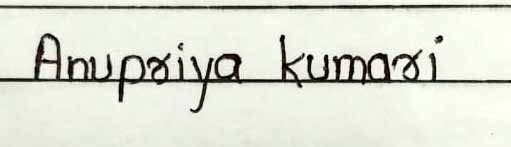 Anupriya kumari